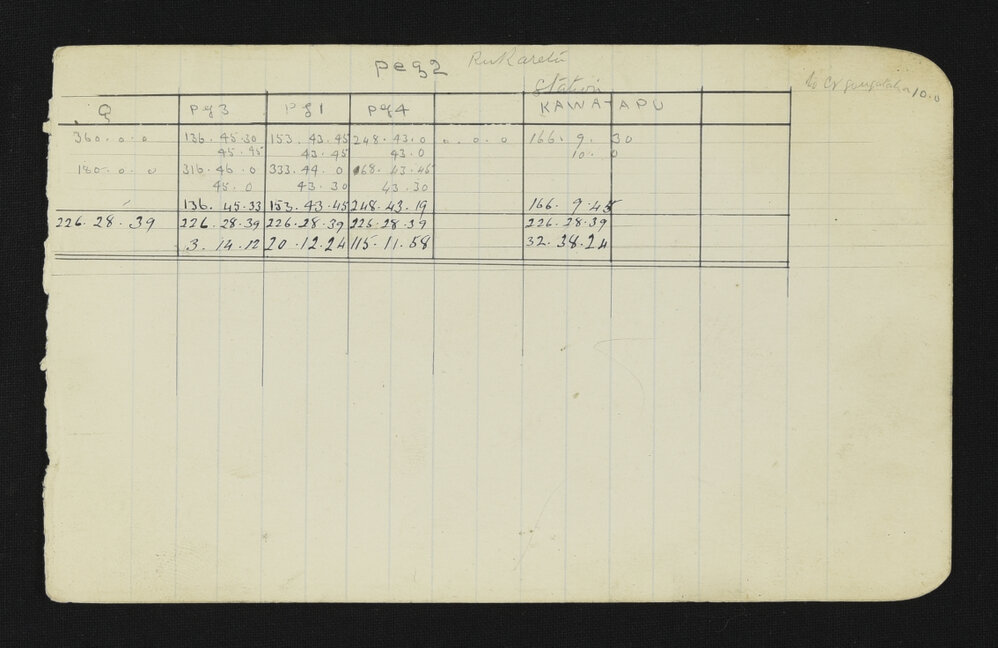 peg 2 Rukaretu
Station
Q pg 3 pg 1 pg 4 KAWATAPU
to 10.0
360.0.0 136.45.30 153.43.45 248.43.0 0.0.0 166.9.30
45.45 43.45 43.0 10.0
180.0.0 316.46.0 333.44.0 68.43.45
45.0 43.30 43.30
136.45.33 153.43.45 248.43.19 166.9.45
226.28.39 226.28.39 226.28.39 226.28.39 226.28.39
3.14.12 20.12.24 115.11.58 32.38.24